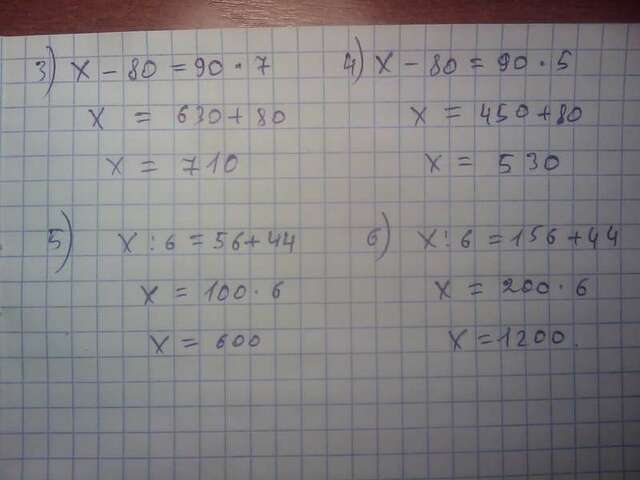 3) x - 80 = 90 · 7
x = 630 + 80
x = 710
4) x - 80 = 90 · 5
x = 450 + 80
x = 530
5) x : 6 = 56 + 44
x = 100 · 6
x = 600
6) x : 6 = 156 + 44
x = 200 · 6
x = 1200.